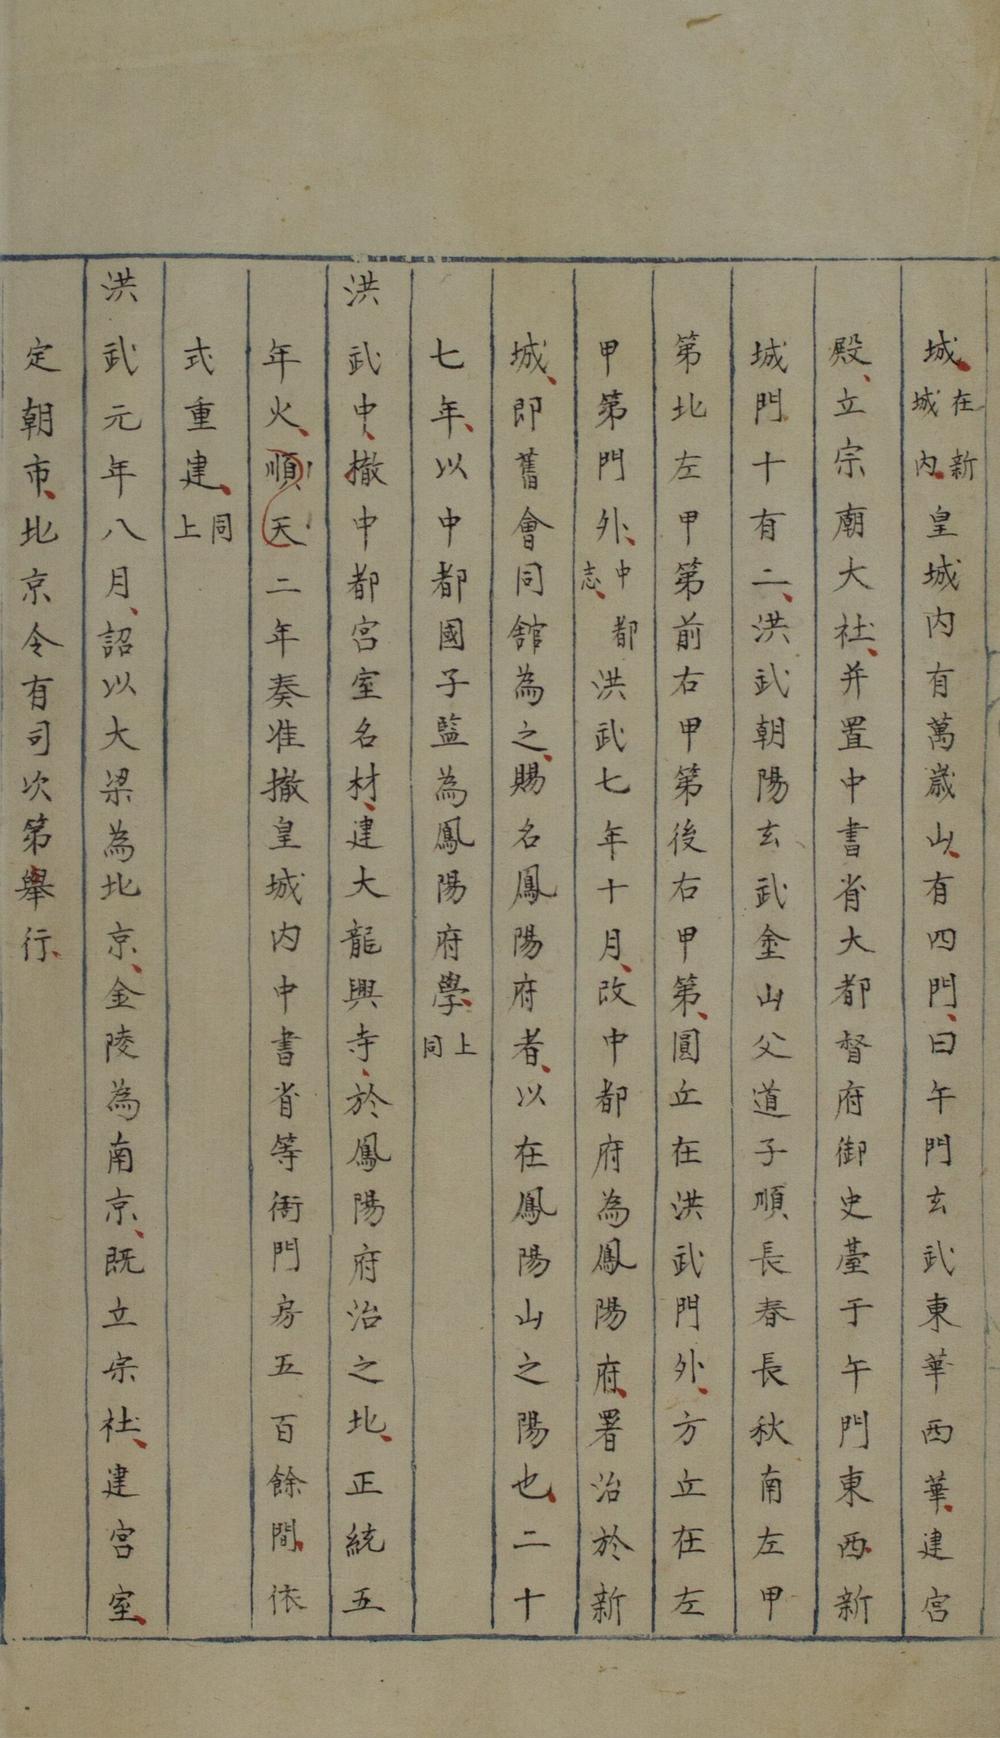 城在新城内皇城内有萬歲山有四門曰午門玄武東華西華建宮
殿立宗廟大社并置中書省大都督府御史臺于午門東西新
城門十有二洪武朝陽玄武金山父道子順長春長秋南左甲
第北左甲第前右甲第後右甲第圓丘在洪武門外方丘在左
甲第門外中都志洪武七年十月改中都府為鳳陽府署治於新
城即舊會同舘為之賜名鳳陽府者以在鳳陽山之陽也二十
七年以中都國子監為鳳陽府學上同
洪武中撤中都宮室名材建大龍興寺於鳳陽府治之北正統五
年火順天二年奏准撤皇城内中書省等衙門房五百餘間依
式重建同上
洪武元年八月詔以大梁為北京金陵為南京既立宗社建宮室
定朝市北京令有司次第舉行